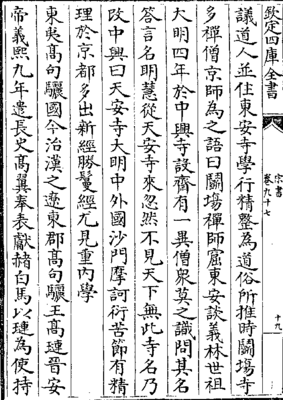 欽定四庫全書
宋書
卷九十七
十九
議道人並住東安寺學行精整為道俗所推時鬭塲寺
多禪僧京師為之語曰鬭塲禪師窟東安談義林世祖
大明四年於中興寺設齋有一異僧衆莫之識問其名
答言名明慧從天安寺來忽然不見天下無此寺名乃
改中興曰天安寺大明中外國沙門摩訶衍苦節有精
理於京都多出新經勝鬘經尤見重內學
東夷高句驪國今治漢之遼東郡高句驪王高璉晉安
帝義熙九年遣長史高翼奉表獻赭白馬以璉為使持